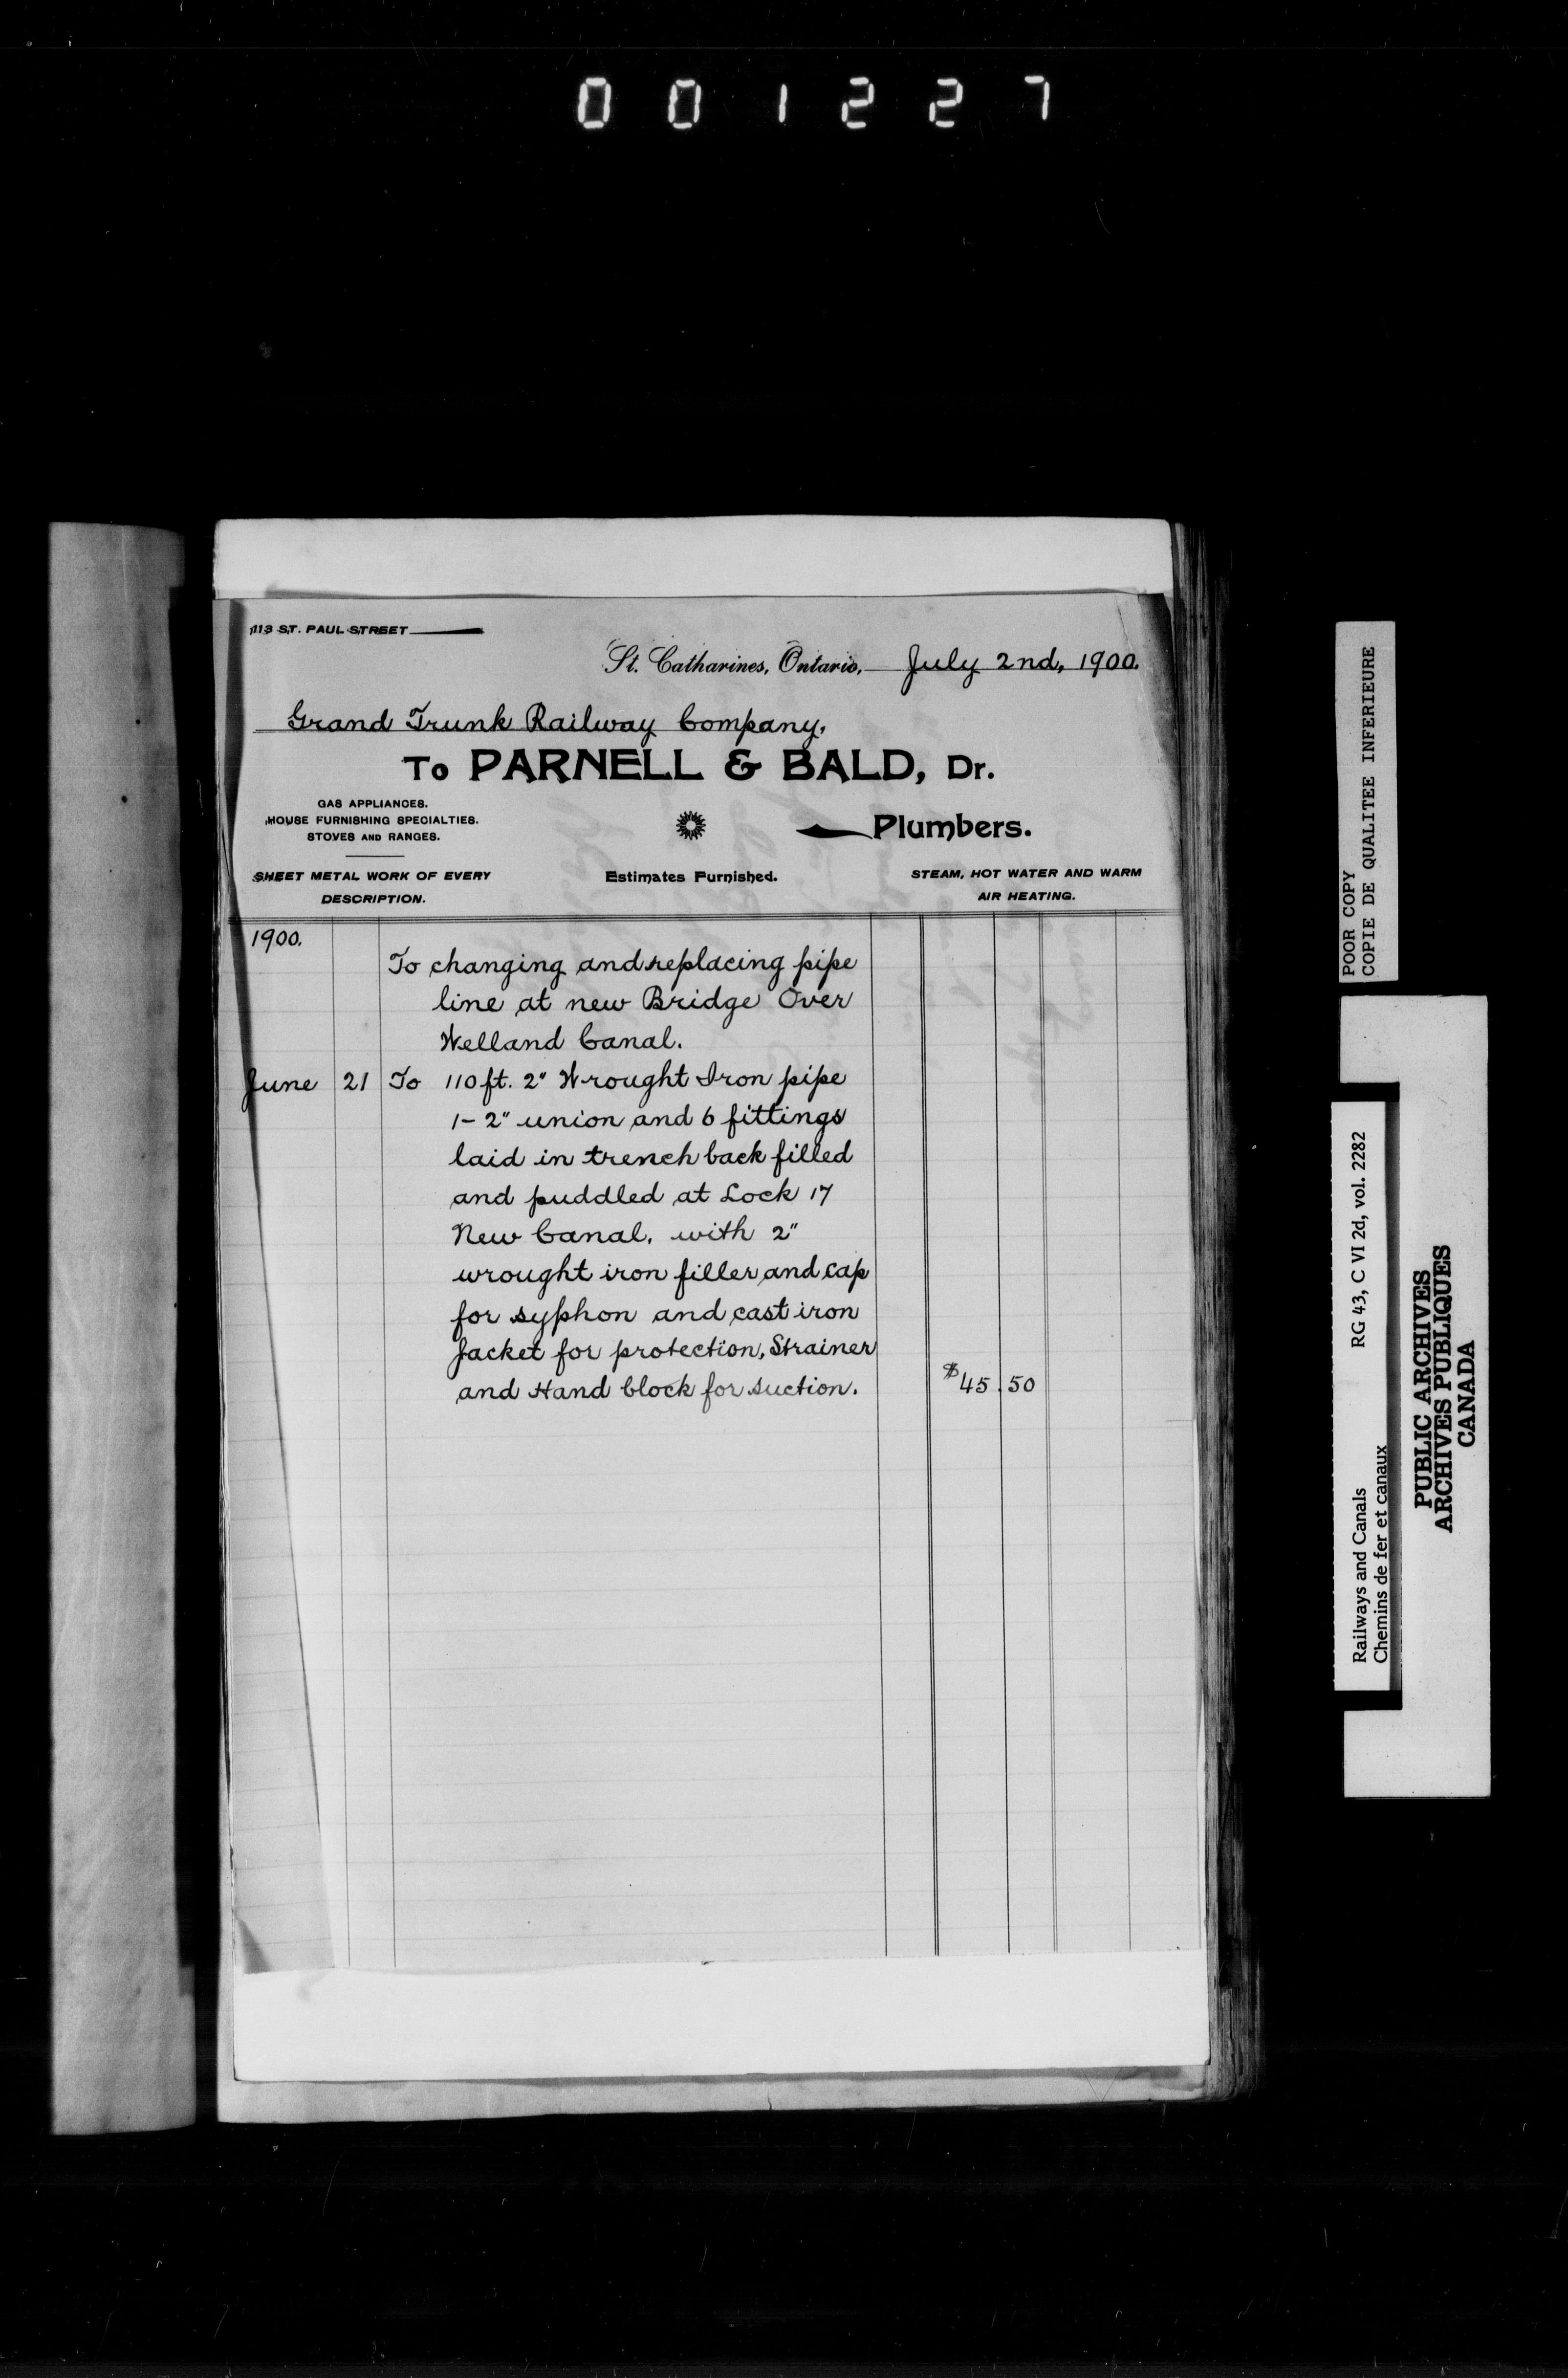 001227
113 ST. PAUL STREET
St. Catharines, Ontario, July 2nd, 1900.
Grand Trunk Railway Company,
To PARNELL & BALD, Dr.
GAS APPLIANCES.
HOUSE FURNISHING SPECIALTIES.
STOVES AND RANGES.
Plumbers.
SHEET METAL WORK OF EVERY
DESCRIPTION.
Estimates Furnished.
STEAM, HOT WATER AND WARM
AIR HEATING.
1900.
To changing and replacing pipe
line at new Bridge Over
Welland Canal.
June 21 To 110 ft. 2" Wrought Iron pipe
1- 2" union and 6 fittings
laid in trench back filled
and puddled at Lock 17
New Canal, with 2"
wrought iron filler and cap
for syphon and cast iron
Jacket for protection, Strainer
and Hand block for suction. $45.50
POOR COPY
COPIE DE QUALITEE INFERIEURE
RG 43, C VI 2d, vol. 2282
Railways and Canals
Chemins de fer et canaux
PUBLIC ARCHIVES
ARCHIVES PUBLIQUES
CANADA